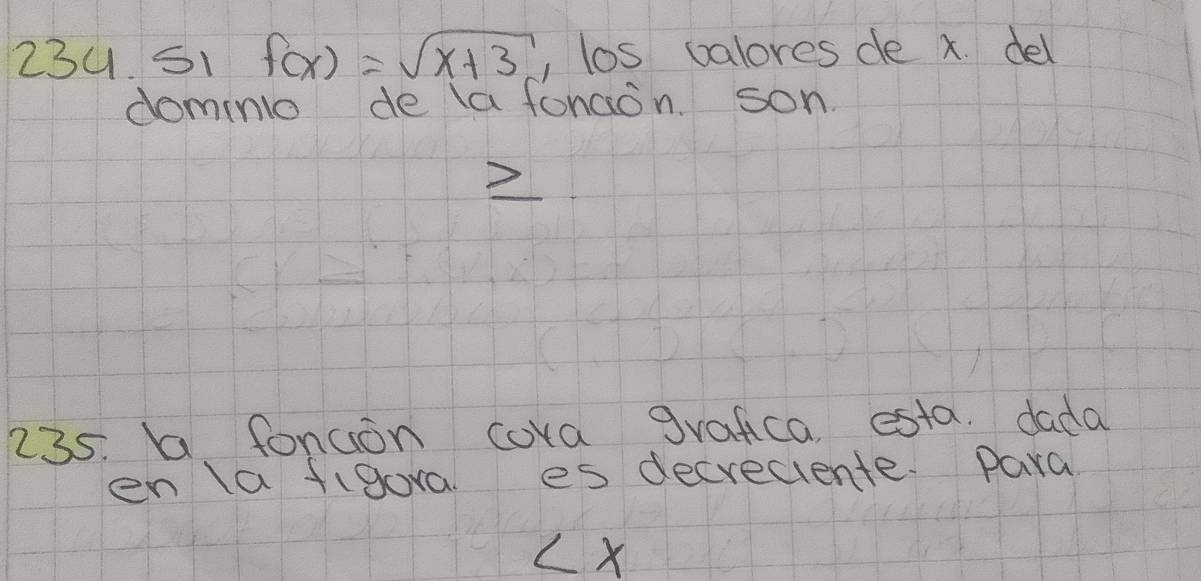 234. Si f(x) = √x+3, los valores de x. del
dominio de la fonción. son.
≥
235. la fonción cora grafica. esta. dada
en la figora. es decreciente. para.
< x